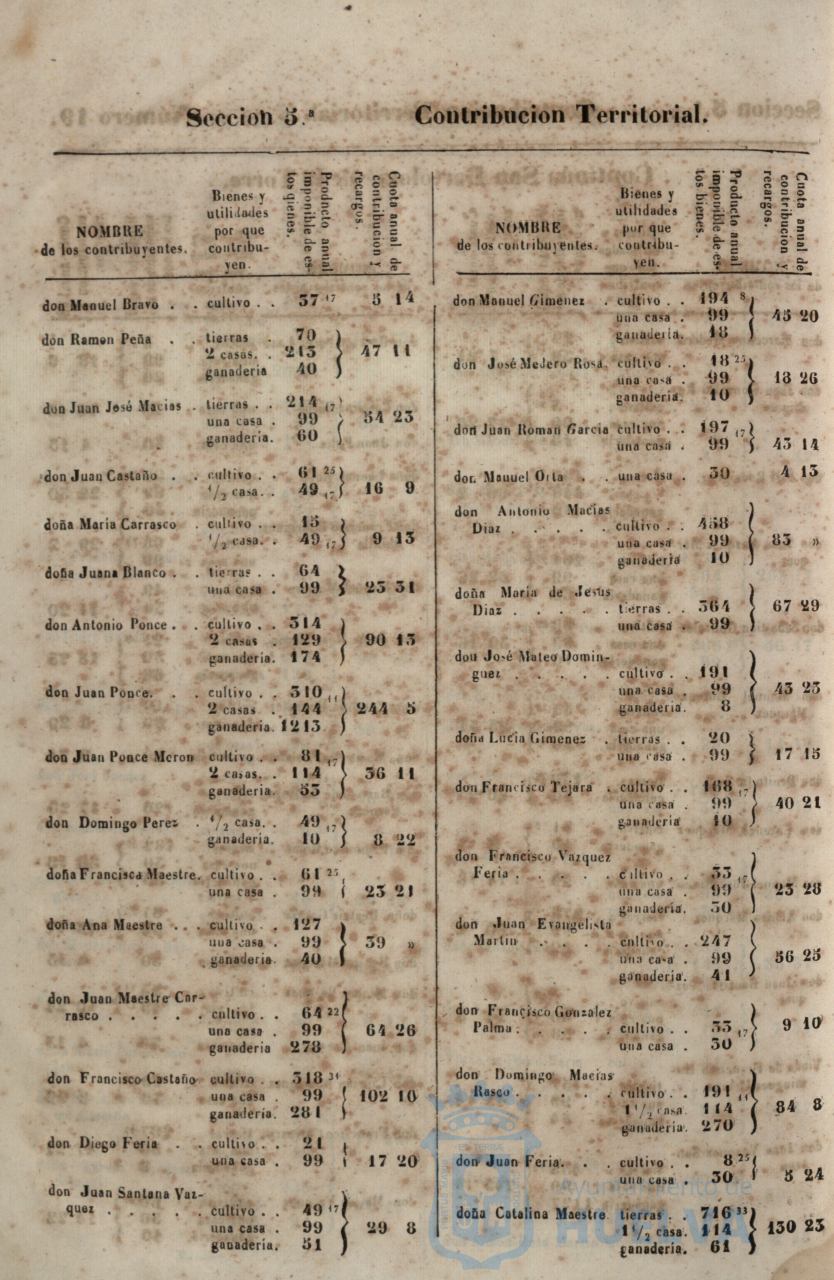 Seccion 5.ª Contribucion Territorial.
NOMBRE
de los contribuyentes.
Bienes y
utilidades
por que
contribu-
yen.
Producto anual
imponible de es-
tos bienes.
Cuota anual de
contribucion y
recargos.
don Manuel Bravo . . cultivo . . 37 17 5 14
don Ramon Peña . . tierras . 70
2 casas. . 213 47 11
ganaderia 40
don Juan José Macias . tierras . . 214 17
una casa . 99 54 23
ganaderia. 60
don Juan Castaño . . cultivo . . 61 25
1/2 casa. . 49 17 16 9
doña Maria Carrasco . cultivo . . 15
1/2 casa. . 49 17 9 13
doña Juana Blanco . . tierras . . 64
una casa . 99 25 31
don Antonio Ponce . . cultivo . . 314
2 casas . 129 90 13
ganaderia. 174
don Juan Ponce. . . cultivo . . 310 11
2 casas . 144 244 5
ganaderia. 1213
don Juan Ponce Meron cultivo . . 81 17
2 casas. . 114 36 11
ganaderia. 33
don Domingo Perez . 1/2 casa. . 49 17
ganaderia. 10 8 22
doña Francisca Maestre. cultivo . . 61 25
una casa . 99 23 21
doña Ana Maestre . . . cultivo . . 127
una casa . 99 39 »
ganaderia. 40
don Juan Maestre Car-
rasco . . . . . cultivo . . 64 22
una casa . 99 64 26
ganaderia 278
don Francisco Castaño cultivo . . 318 31
una casa . 99 102 10
ganaderia. 281
don Diego Feria . . cultivo . . 21
una casa . 99 17 20
don Juan Santana Vaz-
quez . . . . . cultivo . . 49 17
una casa . 99 29 8
ganaderia. 51
NOMBRE
de los contribuyentes.
Bienes y
utilidades
por que
contribu-
yen.
Producto anual
imponible de es-
tos bienes.
Cuota anual de
contribucion y
recargos.
don Manuel Gimenez . cultivo . . 194 8
una casa . 99 45 20
ganaderia. 18
don José Mejero Rosa. cultivo . . 18 25
una casa . 99 18 26
ganaderia. 10
don Juan Roman Garcia cultivo . . 197 17
una casa . 99 43 14
don Manuel Orta . . una casa . 30 4 13
don Antonio Macias
Diaz . . . . . cultivo . . 458
una casa . 99 83 »
ganaderia 10
doña Maria de Jesus
Diaz . . . . . tierras . . 364 67 29
una casa . 99
don José Mateo Domin-
guez . . . . . cultivo . . 191
una casa . 99 43 23
ganaderia. 8
doña Lucia Gimenez . tierras . . 20
una casa . 99 17 15
don Francisco Tejara . cultivo . . 168 17
una casa . 99 40 21
ganaderia 10
don Francisco Vazquez
Feria . . . . . cultivo . . 33 17
una casa . 99 23 28
ganaderia. 30
don Juan Evangelista
Martin . . . . cultivo . . 247
una casa . 99 56 25
ganaderia. 41
don Francisco Gonzalez
Palma . . . . . cultivo . . 33 17 9 10
una casa . 30
don Domingo Macias
Rasco . . . . . cultivo . . 191 11
1 1/2 casa. 114 84 8
ganaderia. 270
don Juan Feria. . . cultivo . . 8 25
una casa . 30 5 24
doña Catalina Maestre tierras . . 716 33
1 1/2 casa. 114 130 23
ganaderia. 61
Ayuntamiento de
HUELVA